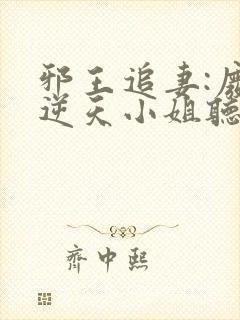 邪王追妻:廢
逆天小姐聽
齊中熙